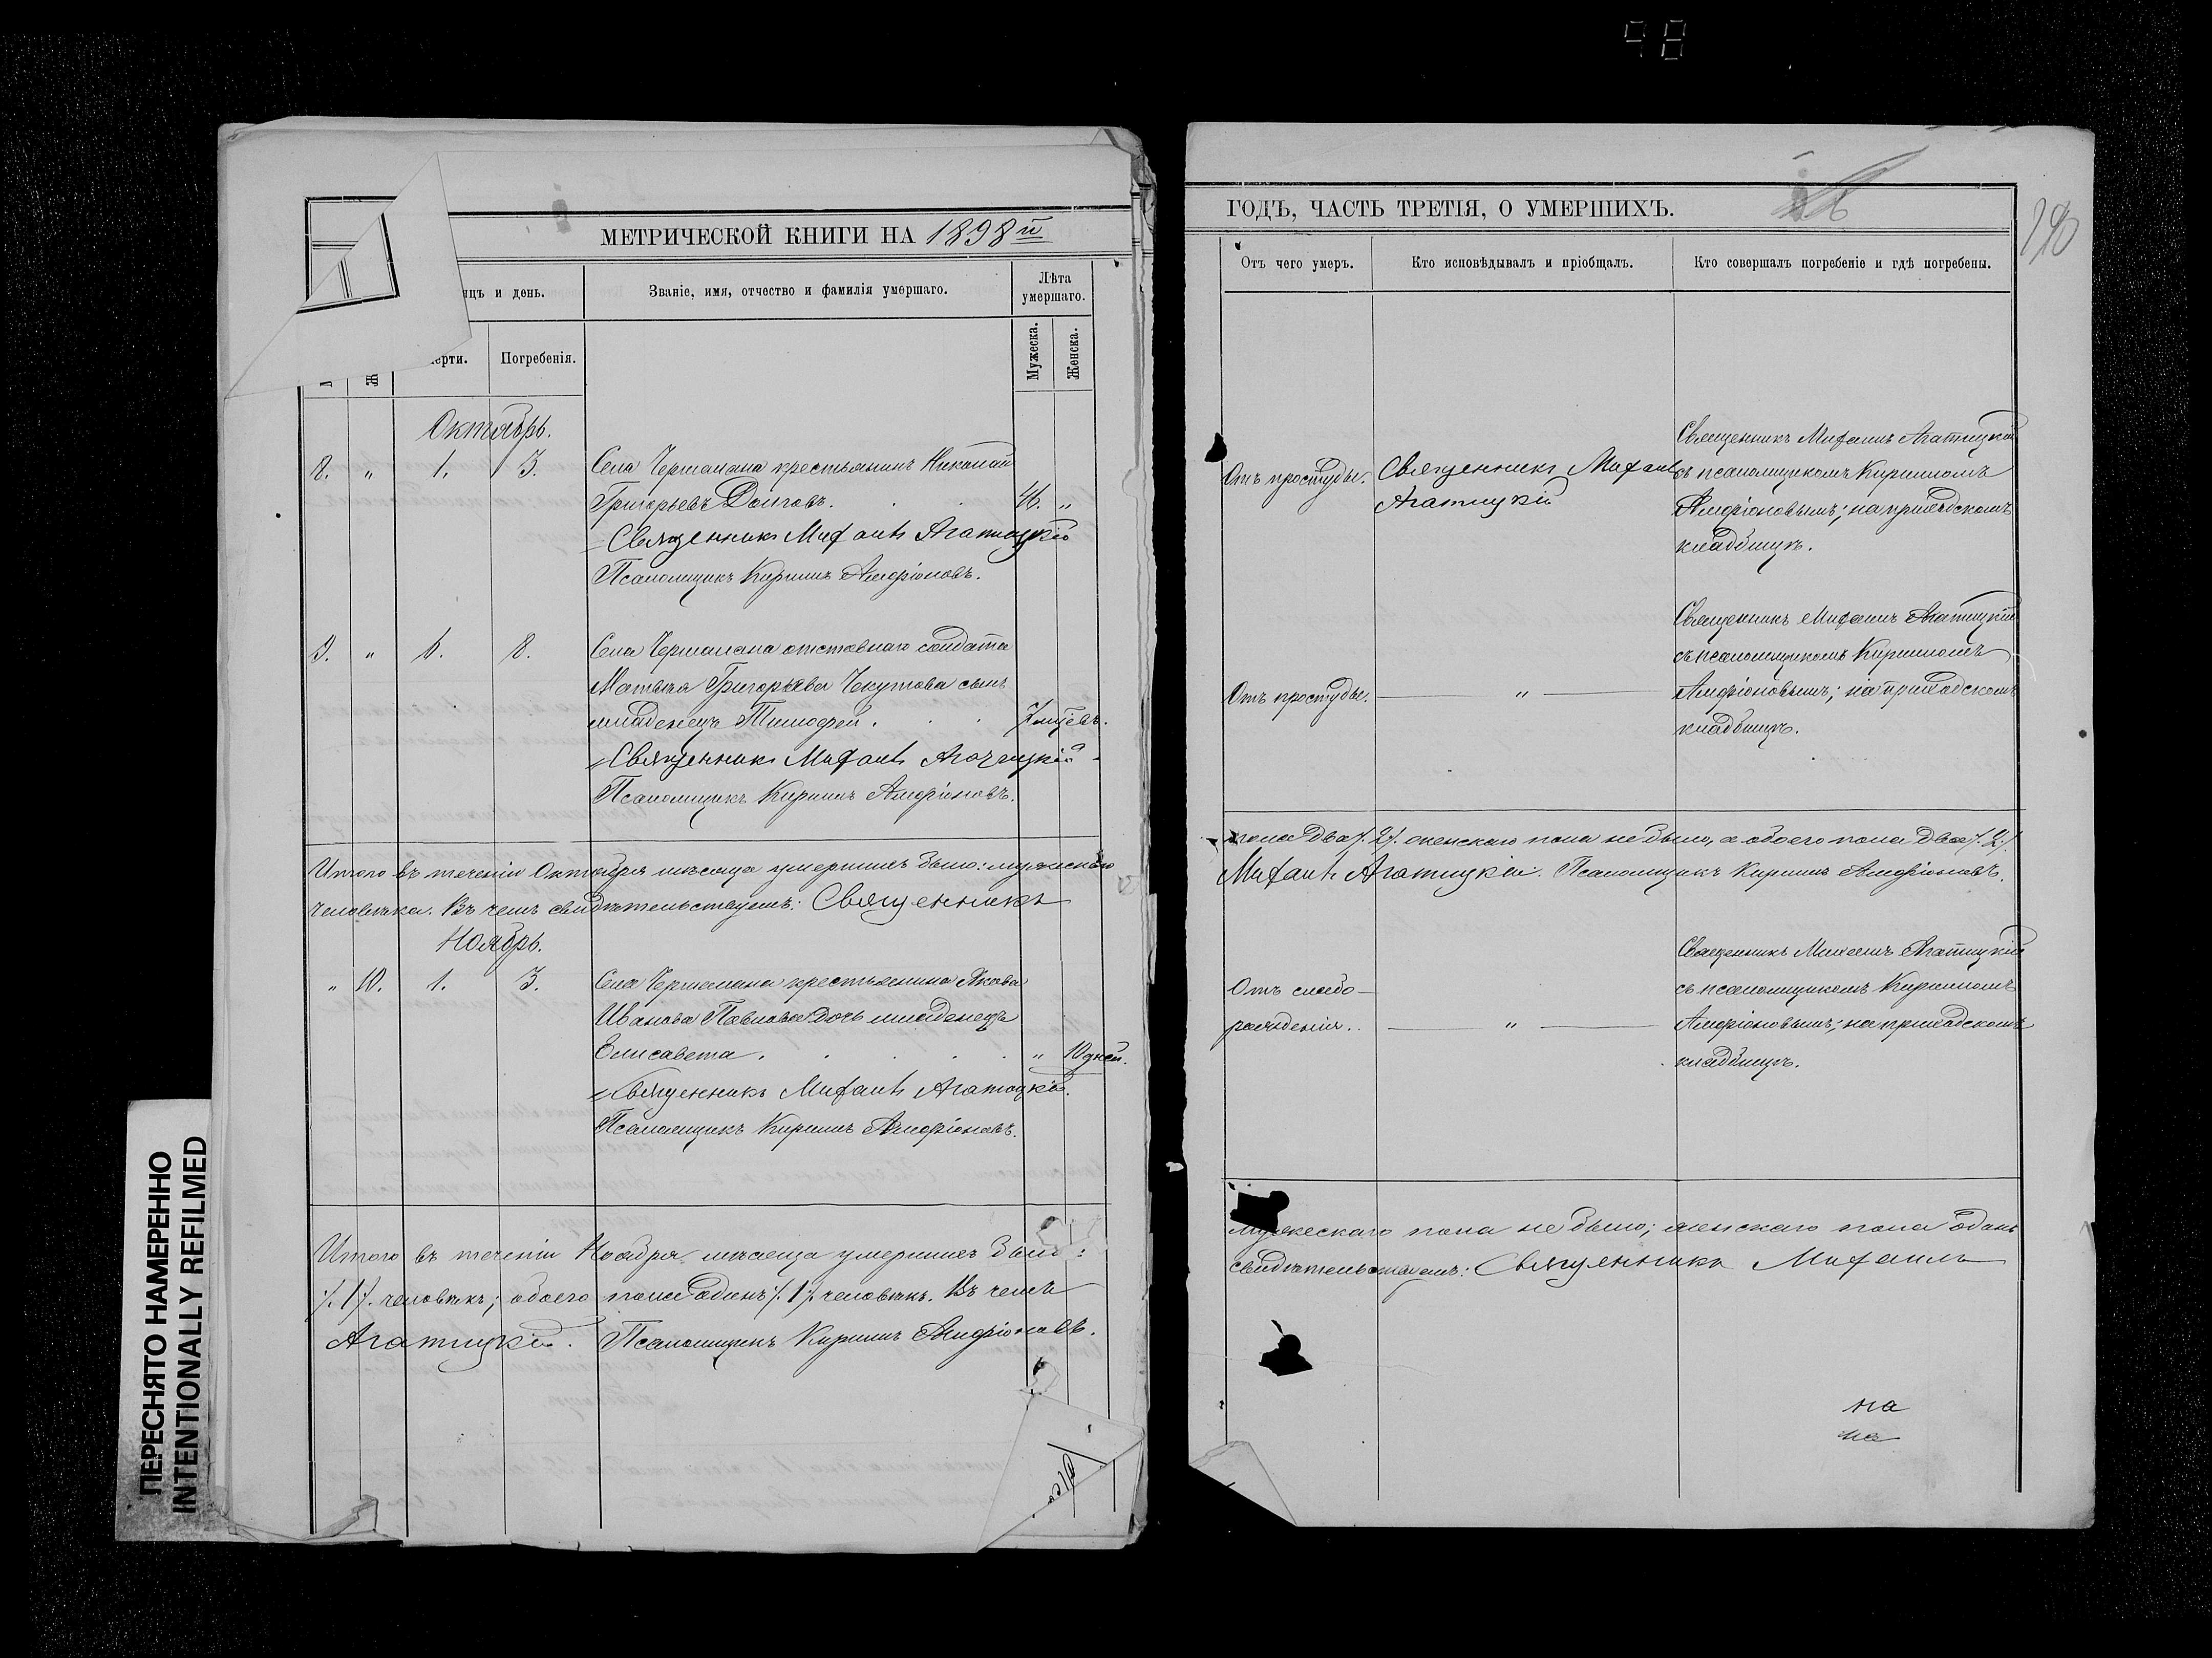 98
МЕТРИЧЕСКОЙ КНИГИ НА 1898й
ѣсяцъ и день.
Званіе, имя, отчество и фамилія умершаго.
Лѣта умершаго.
Погребенія.
Мужеска.
Женска.
Октябрь.
8. " 1. 3.
Села Чермалана крестьянинъ Николай
Григорьевъ Долговъ. 46. "
Священникъ Михаилъ Агатицкій
Псаломщикъ Кириллъ Амфіоновъ.
9. " 6. 8.
Села Чермалана отставнаго солдата
Матвѣя Григорьева Чекутова сынъ
младенецъ Тимофей. 7 мцевъ.
Священникъ Михаилъ Агатицкій
Псаломщикъ Кириллъ Амфіоновъ.
Итого въ теченіи Октября мѣсяца умершихъ было: мужскаго
человѣка. Въ чемъ свидѣтельствуемъ: Священникъ
Ноябрь.
" 10. 1. 3.
Села Чермалана крестьянина Якова
Иванова Павлова дочь младенецъ
Елисавета. " 10 дней.
Священникъ Михаилъ Агатицкій.
Псаломщикъ Кириллъ Амфіоновъ.
Итого въ теченіи Ноября мѣсяца умершихъ было:
/.1/. человѣкъ; обоего пола одинъ /.1/. человѣкъ. Въ чемъ
Агатицкій. Псаломщикъ Кириллъ Амфіоновъ.
ГОДЪ, ЧАСТЬ ТРЕТІЯ, О УМЕРШИХЪ.
Отъ чего умеръ.
Кто исповѣдывалъ и пріобщалъ.
Кто совершалъ погребеніе и гдѣ погребены.
Отъ простуды.
Священникъ Михаилъ
Агатицкій
Священникъ Михаилъ Агатицкій
съ псаломщикомъ Кирилломъ
Амфіоновымъ; на приходскомъ
кладбищѣ.
Отъ простуды. "
Священникъ Михаилъ Агатицкій
съ псаломщикомъ Кирилломъ
Амфіоновымъ; на приходскомъ
кладбищѣ.
пола два /.2/. женскаго пола не было, а обоего пола два /.2/.
Михаилъ Агатицкій. Псаломщикъ Кириллъ Амфіоновъ.
Отъ слабо-
рожденія. "
Священникъ Михаилъ Агатицкій
съ псаломщикомъ Кирилломъ
Амфіоновымъ; на приходскомъ
кладбищѣ.
мужескаго пола не было; женскаго пола одинъ
свидѣтельствуемъ: Священникъ Михаилъ
на
на
ПЕРЕСНЯТО НАМЕРЕННО
INTENTIONALLY REFILMED